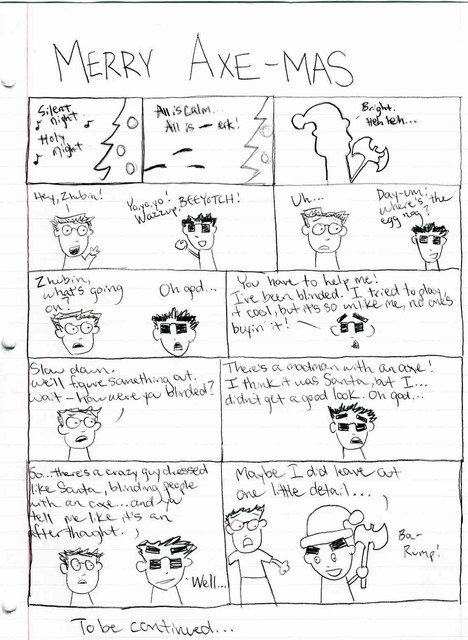 MERRY AXE-MAS
Silent
night
Holy
Night
All is Calm...
All is — eck!
Bright.
Heh heh...
Hey, Zhubin!
Yo yo yo!
Wazzup, BEEYOTCH!
Uh...
Day-um!
where's the
egg nog?
Zhubin,
what's going
on?
Oh god...
You have to help me!
I've been blinded. I tried to play
it cool, but it's so unlike me, no one's
buyin' it!
Slow down.
We'll figure something out.
Wait - how were you blinded?
There's a madman with an axe!
I think it was Santa, but I...
didn't get a good look. Oh god...
So... there's a crazy guy dressed
like Santa, blinding people
with an axe... and you
tell me like it's an
afterthought.
Well...
Maybe I did leave out
one little detail...
Ba-
Rump!
To be continued...